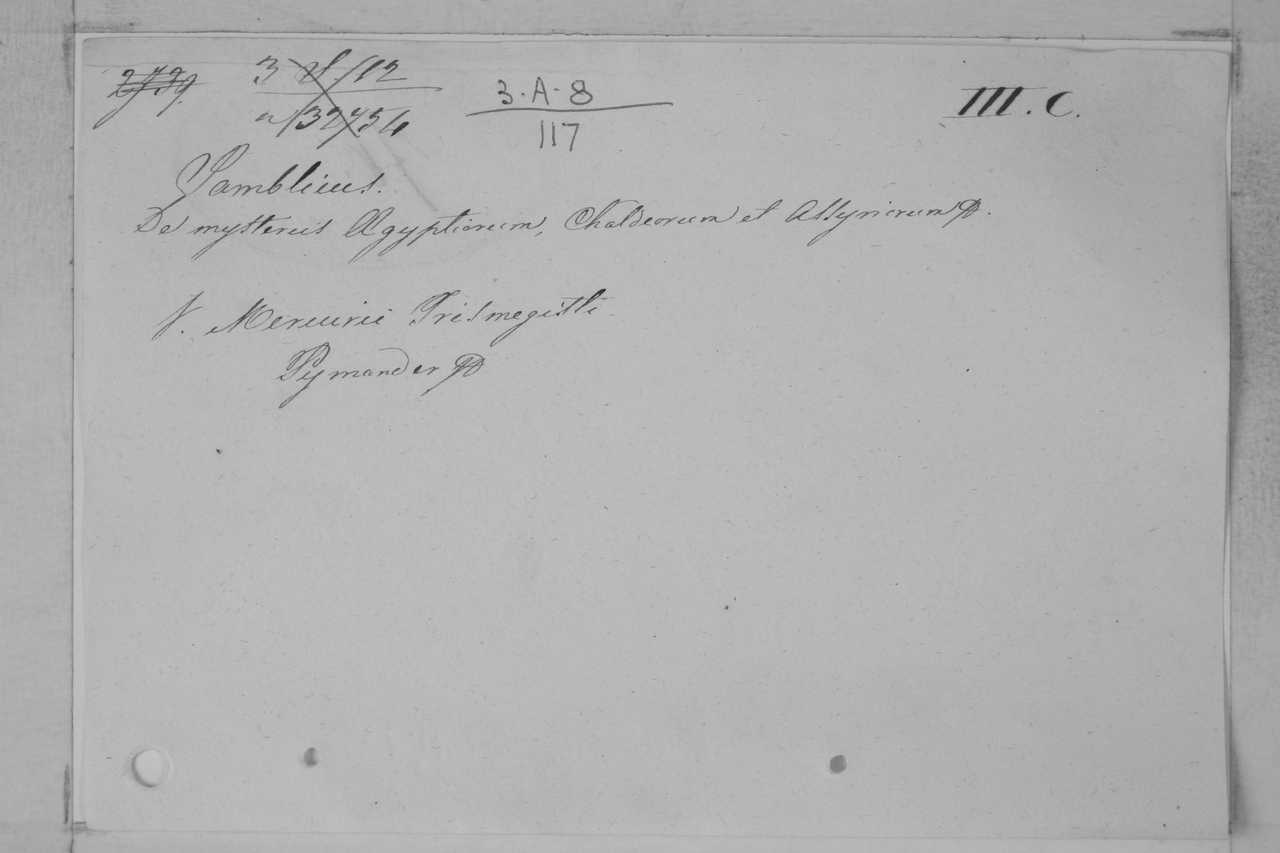 3·A·8
117
III. C.
Jamblicus.
De mysteriis Ægyptiorum, Chaldeorum et Assyriorum
V. Mercurii Trismegisti
Pymander